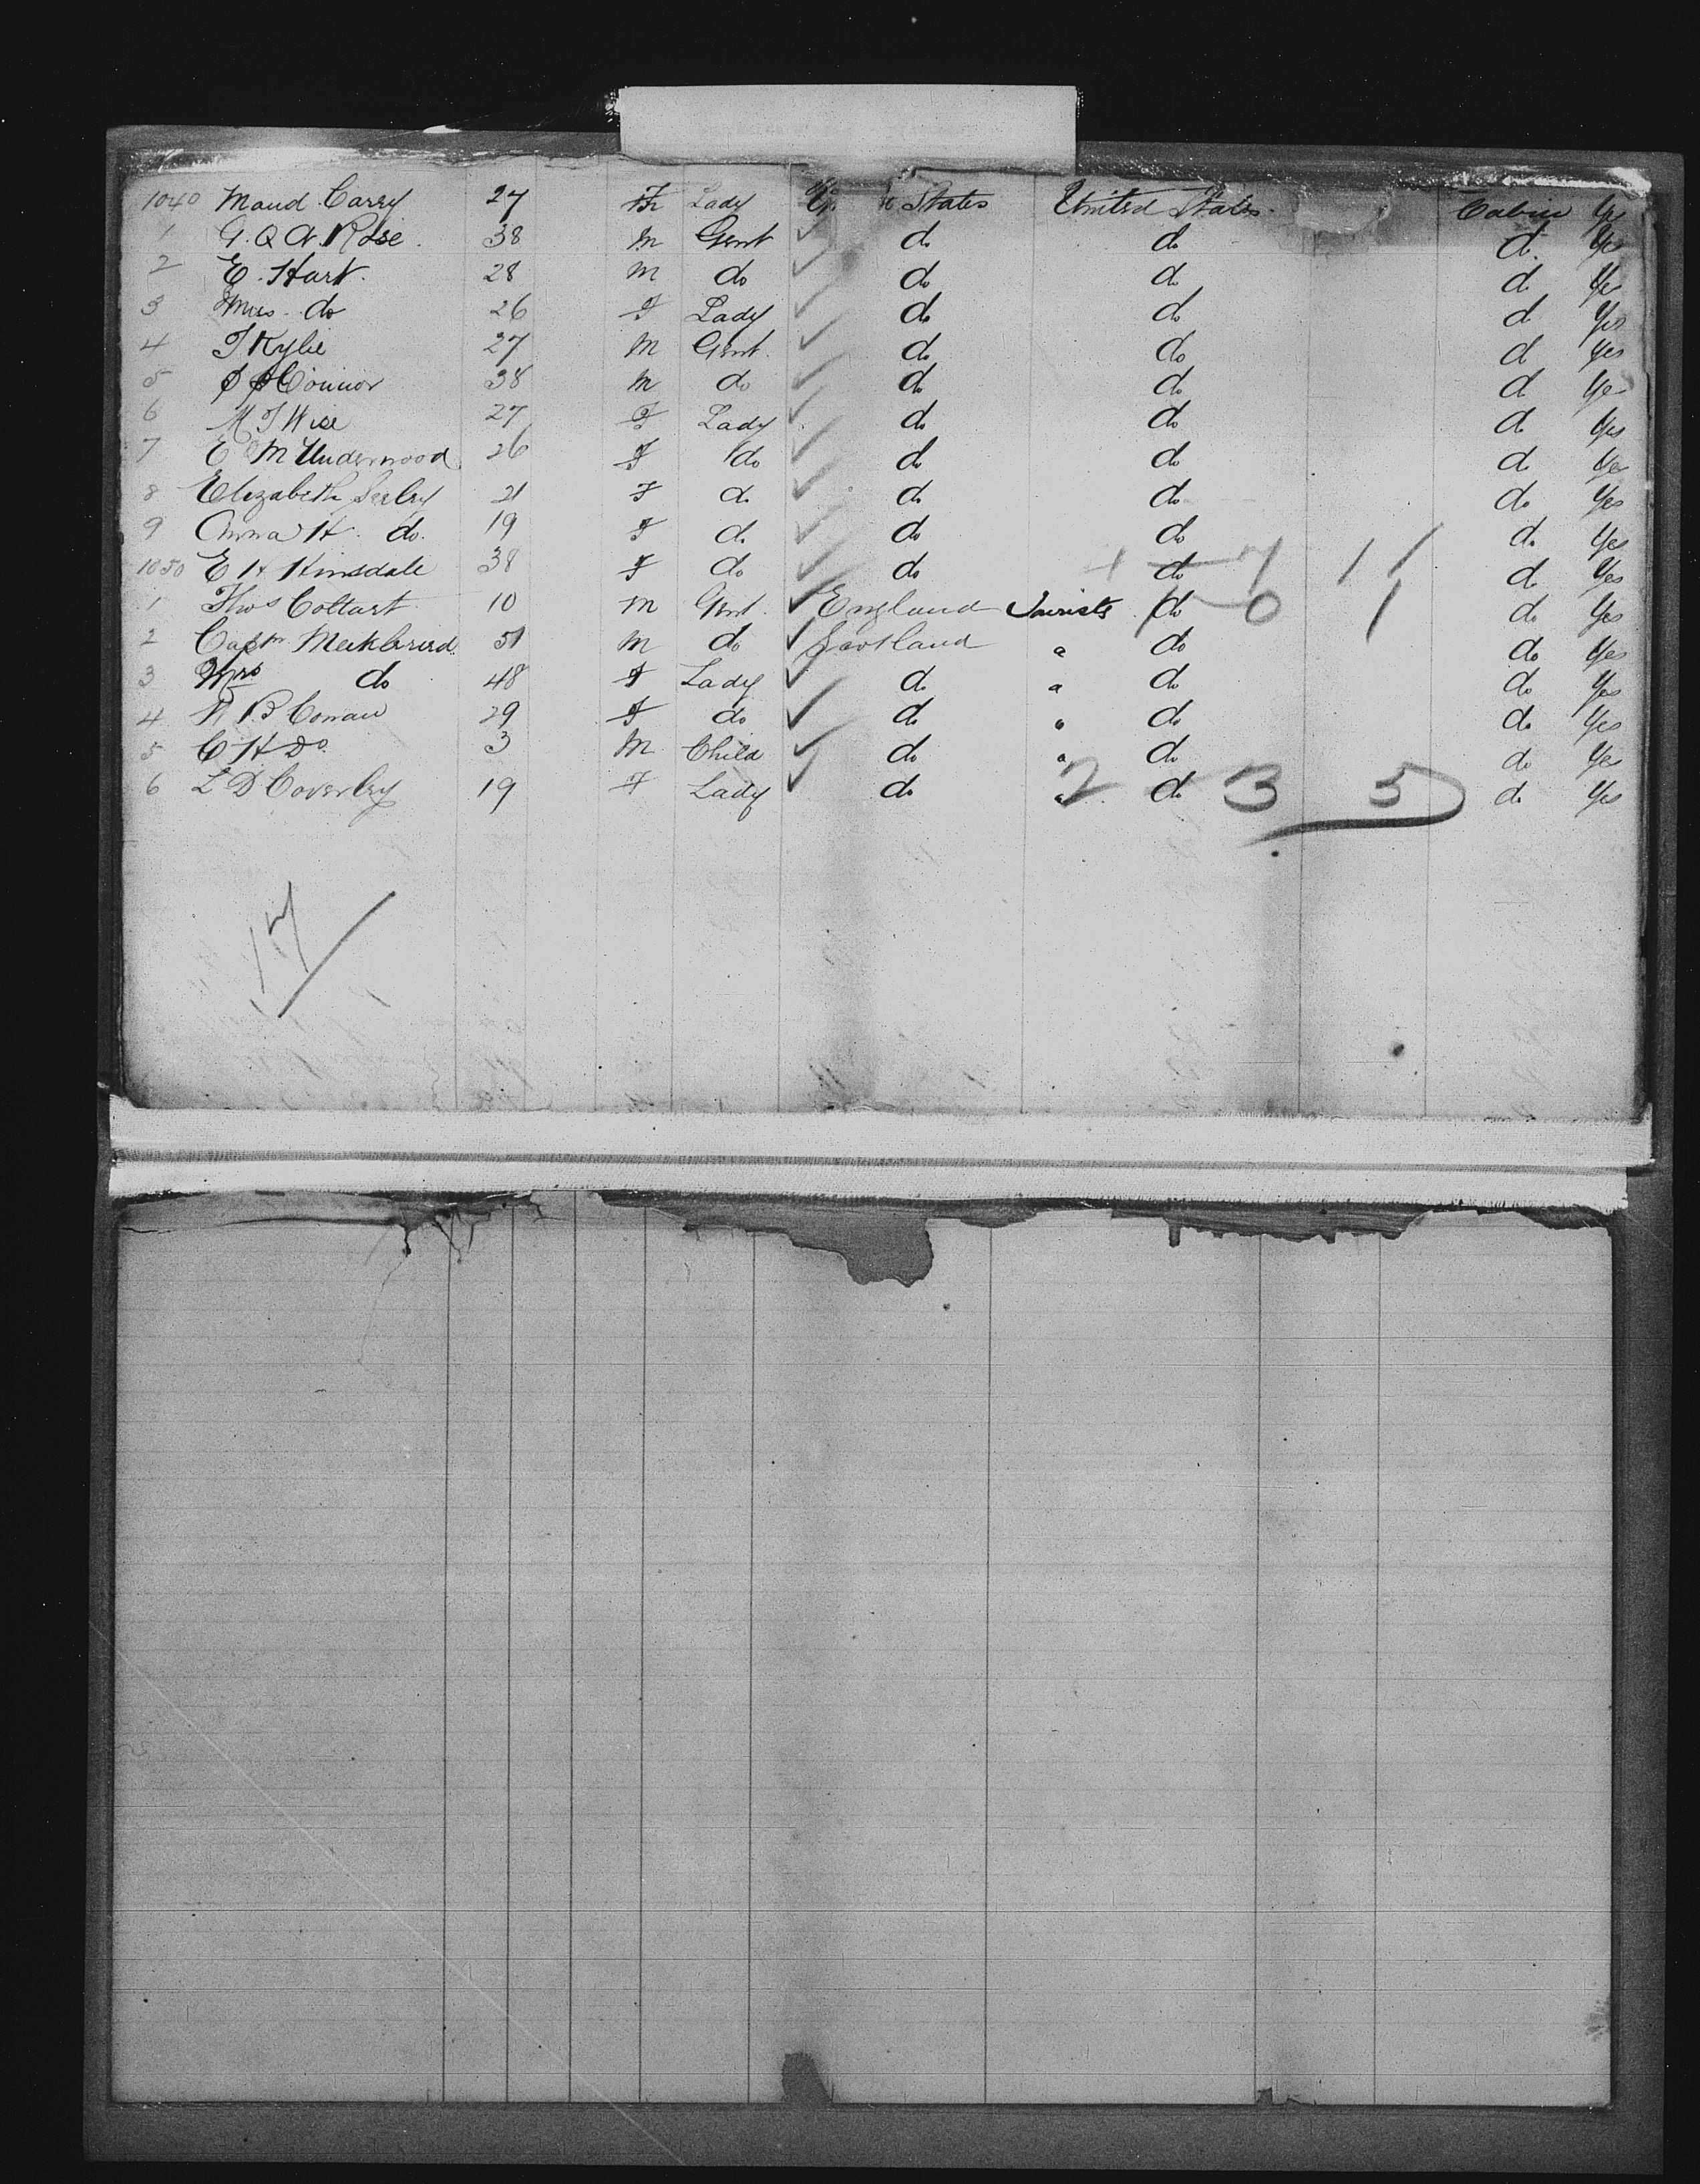 1040 Maud Carey 27 F Lady States United States Cabin Yes
1 G. Q A. Rose. 38 M Gent do do do Yes
2 E. Hart. 28 M do do do do Yes
3 Mrs. do 26 F Lady do do do Yes
4 T Kylie 27 M Gent. do do do Yes
5 Connor 38 M do do do do Yes
6 M T Wise 27 F Lady do do do Yes
7 E M Underwood 26 F do do do do Yes
8 Elizabeth 21 F do do do do Yes
9 Anna H. do. 19 F do do do do Yes
1050 E H Hinsdale 38 F do do do 7 11 do Yes
1 Thos Coltart 10 M Gent. England Tourists do 0 1 do Yes
2 Captn 51 M do Scotland " do do Yes
3 Mrs do 48 F Lady do " do do Yes
4 R B Cowan 29 F do do " do do Yes
5 C H Do. 3 M Child do " do do Yes
6 L D Coverley 19 F Lady do " 2 do 3 5 do Yes
17